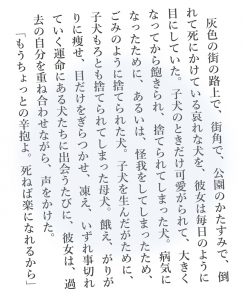 灰色の街の路上で、街角で、公園のかたすみで、倒
れて死にかけている哀れな犬を、彼女は毎日のように
目にしていた。子犬のときだけ可愛がられて、大きく
なってから飽きられ、捨てられてしまった犬。病気に
なったために、あるいは、怪我をしてしまったため、
ごみのように捨てられた犬。子犬を生んだがために、
子犬もろとも捨てられてしまった母犬。餓え、がりが
りに痩せ、目だけをぎらつかせ、凍え、いずれ事切れ
ていく運命にある犬たちに出会うたびに、彼女は、過
去の自分を重ね合わせながら、声をかけた。
「もうちょっとの辛抱よ。死ねば楽になれるから」